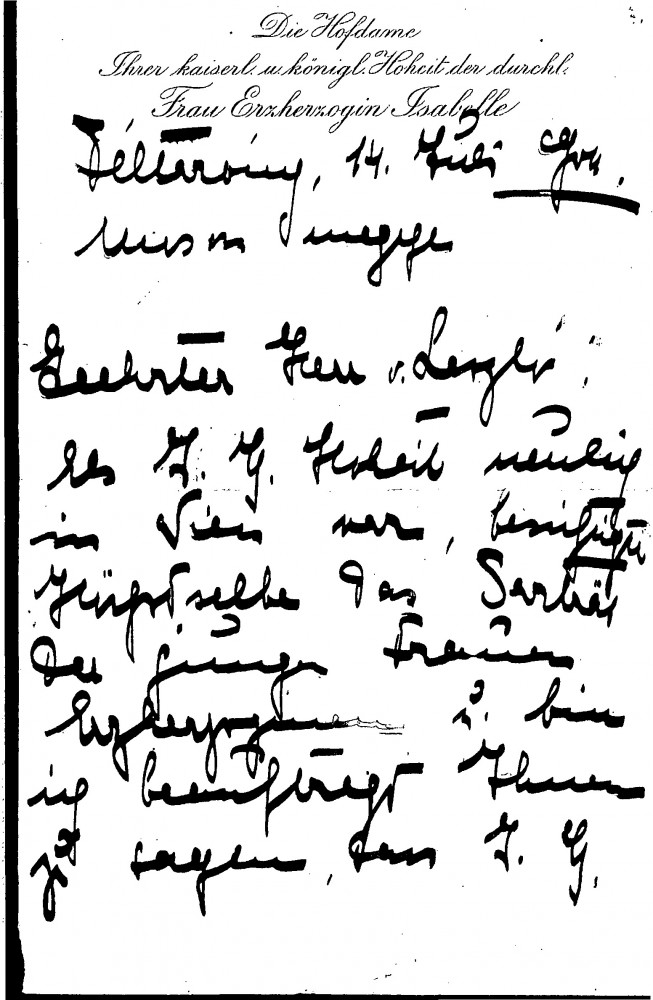 Die Hofdame
Ihrer kaiserl. u. königl. Hoheit der durchl.
Frau Erzherzogin Isabelle
Féltorony, 14. Juli 904.
Moson megye
Geehrter Herr v. László!
Als I. K. Hoheit neulich
in Wien war, besichtigte
Höchstselbe das Porträt
der jungen Frauen
Erzherzoginnen u. bin
ich beauftragt Ihnen
zu sagen, dass I. K.